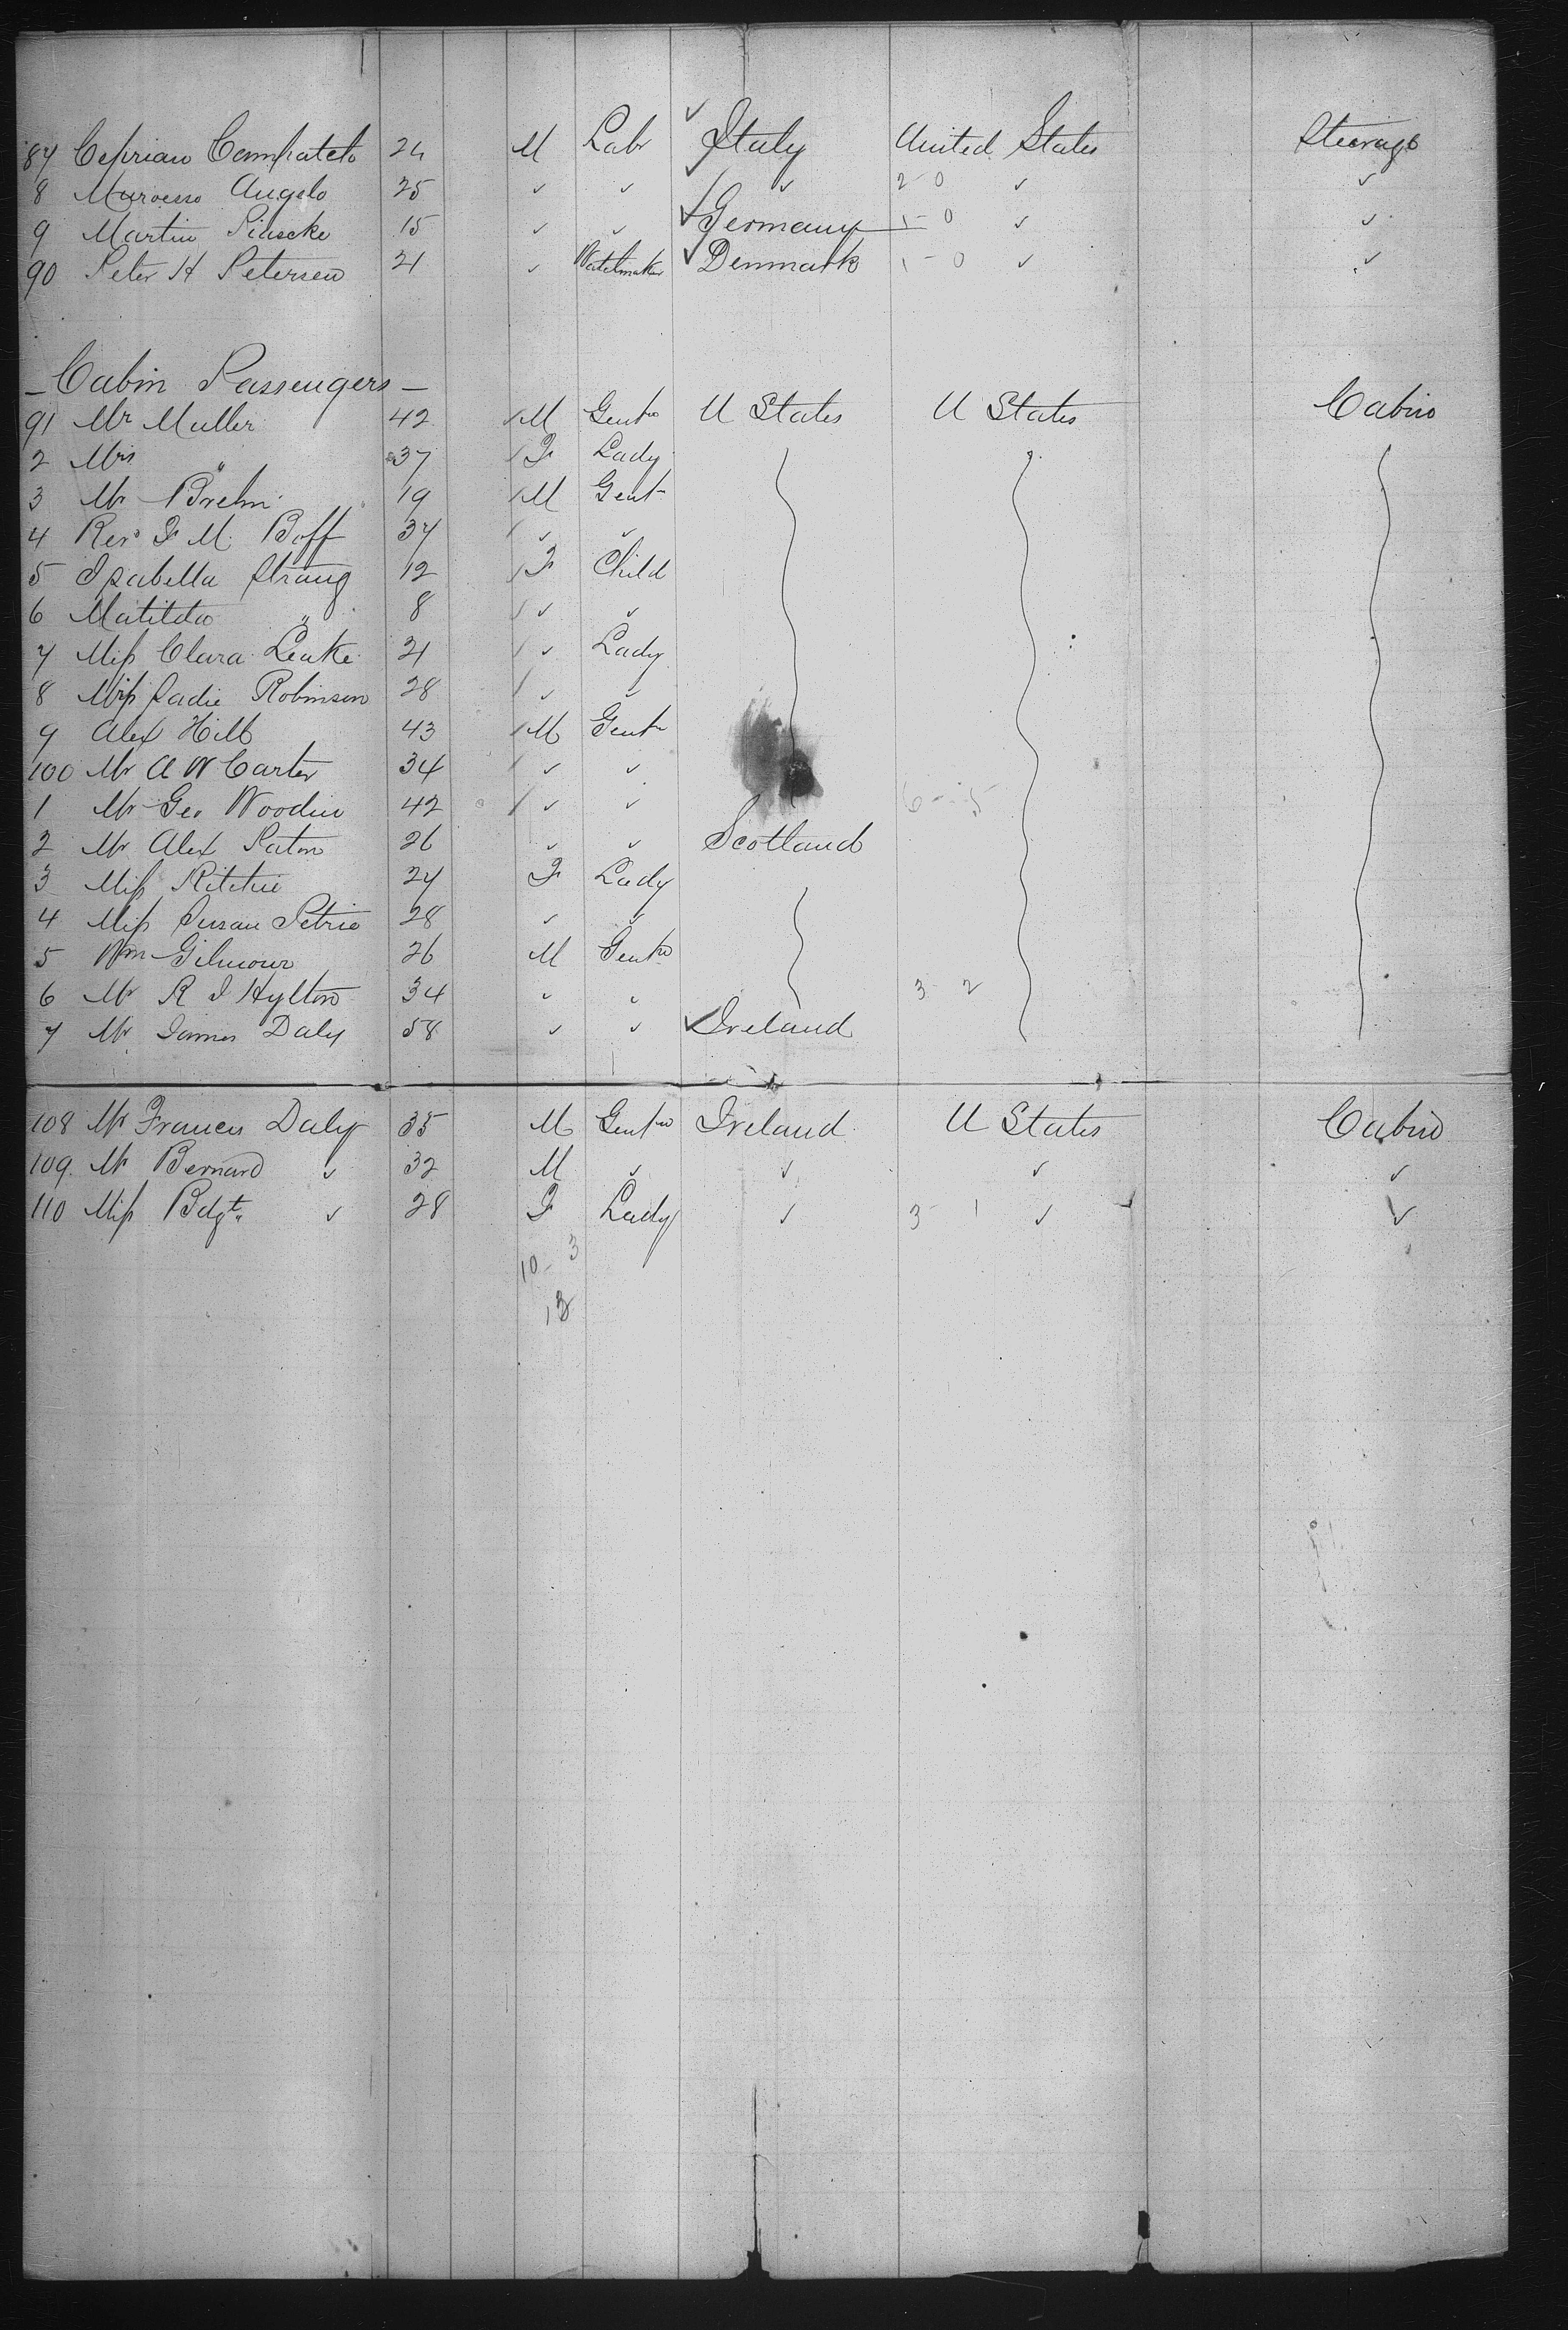 87 Ciprian Campatelo 24 M Labr ✓ Italy United States Steerage
8 Muroesso Angelo 25 ✓ ✓ ✓ 2-0 ✓ ✓
9 Martin 15 ✓ ✓ ✓ Germany 1-0 ✓ ✓
90 Peter H Petersen 21 ✓ Watchmaker ✓ Denmark 1-0 ✓ ✓
- Cabin Passengers -
91 Mr Muller 42 M Gentn U States U States Cabin
2 Mrs " 37 F Lady
3 Mr Brehm 19 M Gent
4 Revd F M. Boff 37 ✓ ✓
5 Isabella Strang 12 F Child
6 Matilda " 8 ✓ ✓
7 Miss Clara Leake 21 ✓ Lady
8 Miss Sadie Robinson 28 ✓ ✓
9 Alex Hill 43 M Gentn
100 Mr A W Carter 34 ✓ ✓
1 Mr Geo Woodin 42 ✓ ✓ 6-5
2 Mr Alex Paton 26 ✓ ✓ Scotland
3 Miss Ritchie 24 F Lady
4 Miss Susan Petrie 28 ✓ ✓
5 Wm Gilmour 26 M Gentn
6 Mr R J Hylton 34 " " 3-2
7 Mr James Daly 58 ✓ ✓ ✓ Ireland
108 Mr Francis Daly 35 M Gentn Ireland U States Cabin
109. Mr Bernard ✓ 32 M ✓ ✓ ✓ ✓
110 Miss Bdgt. ✓ 28 F Lady ✓ 3-1 ✓ ✓
10-3
13